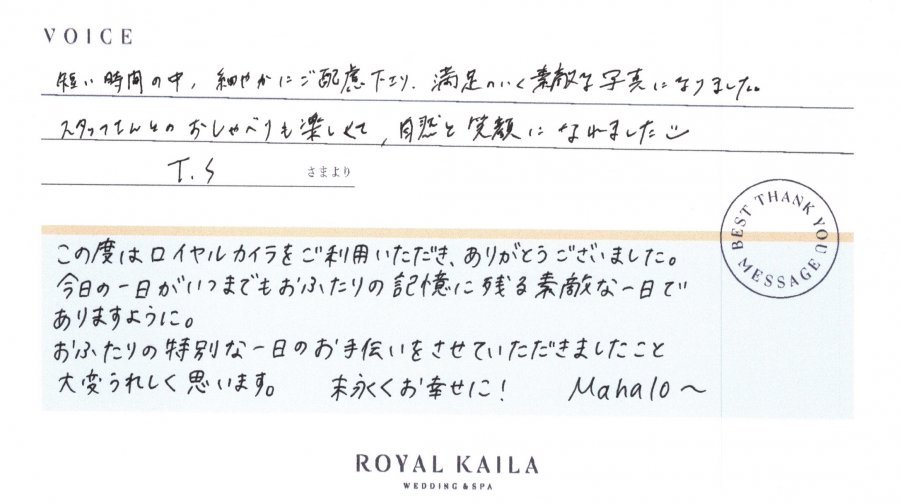 VOICE
短い時間の中、細やかにご配慮下さり、満足のいく素敵な写真になりました。
スタッフさんとのおしゃべりも楽しくて、自然と笑顔になれました
T.S さまより
BEST THANK YOU MESSAGE
この度はロイヤルカイラをご利用いただき、ありがとうございました。
今日の一日がいつまでもおふたりの記憶に残る素敵な一日で
ありますように。
おふたりの特別な一日のお手伝いをさせていただきましたこと
大変うれしく思います。 末永くお幸せに! Mahalo〜
ROYAL KAILA
WEDDING & SPA